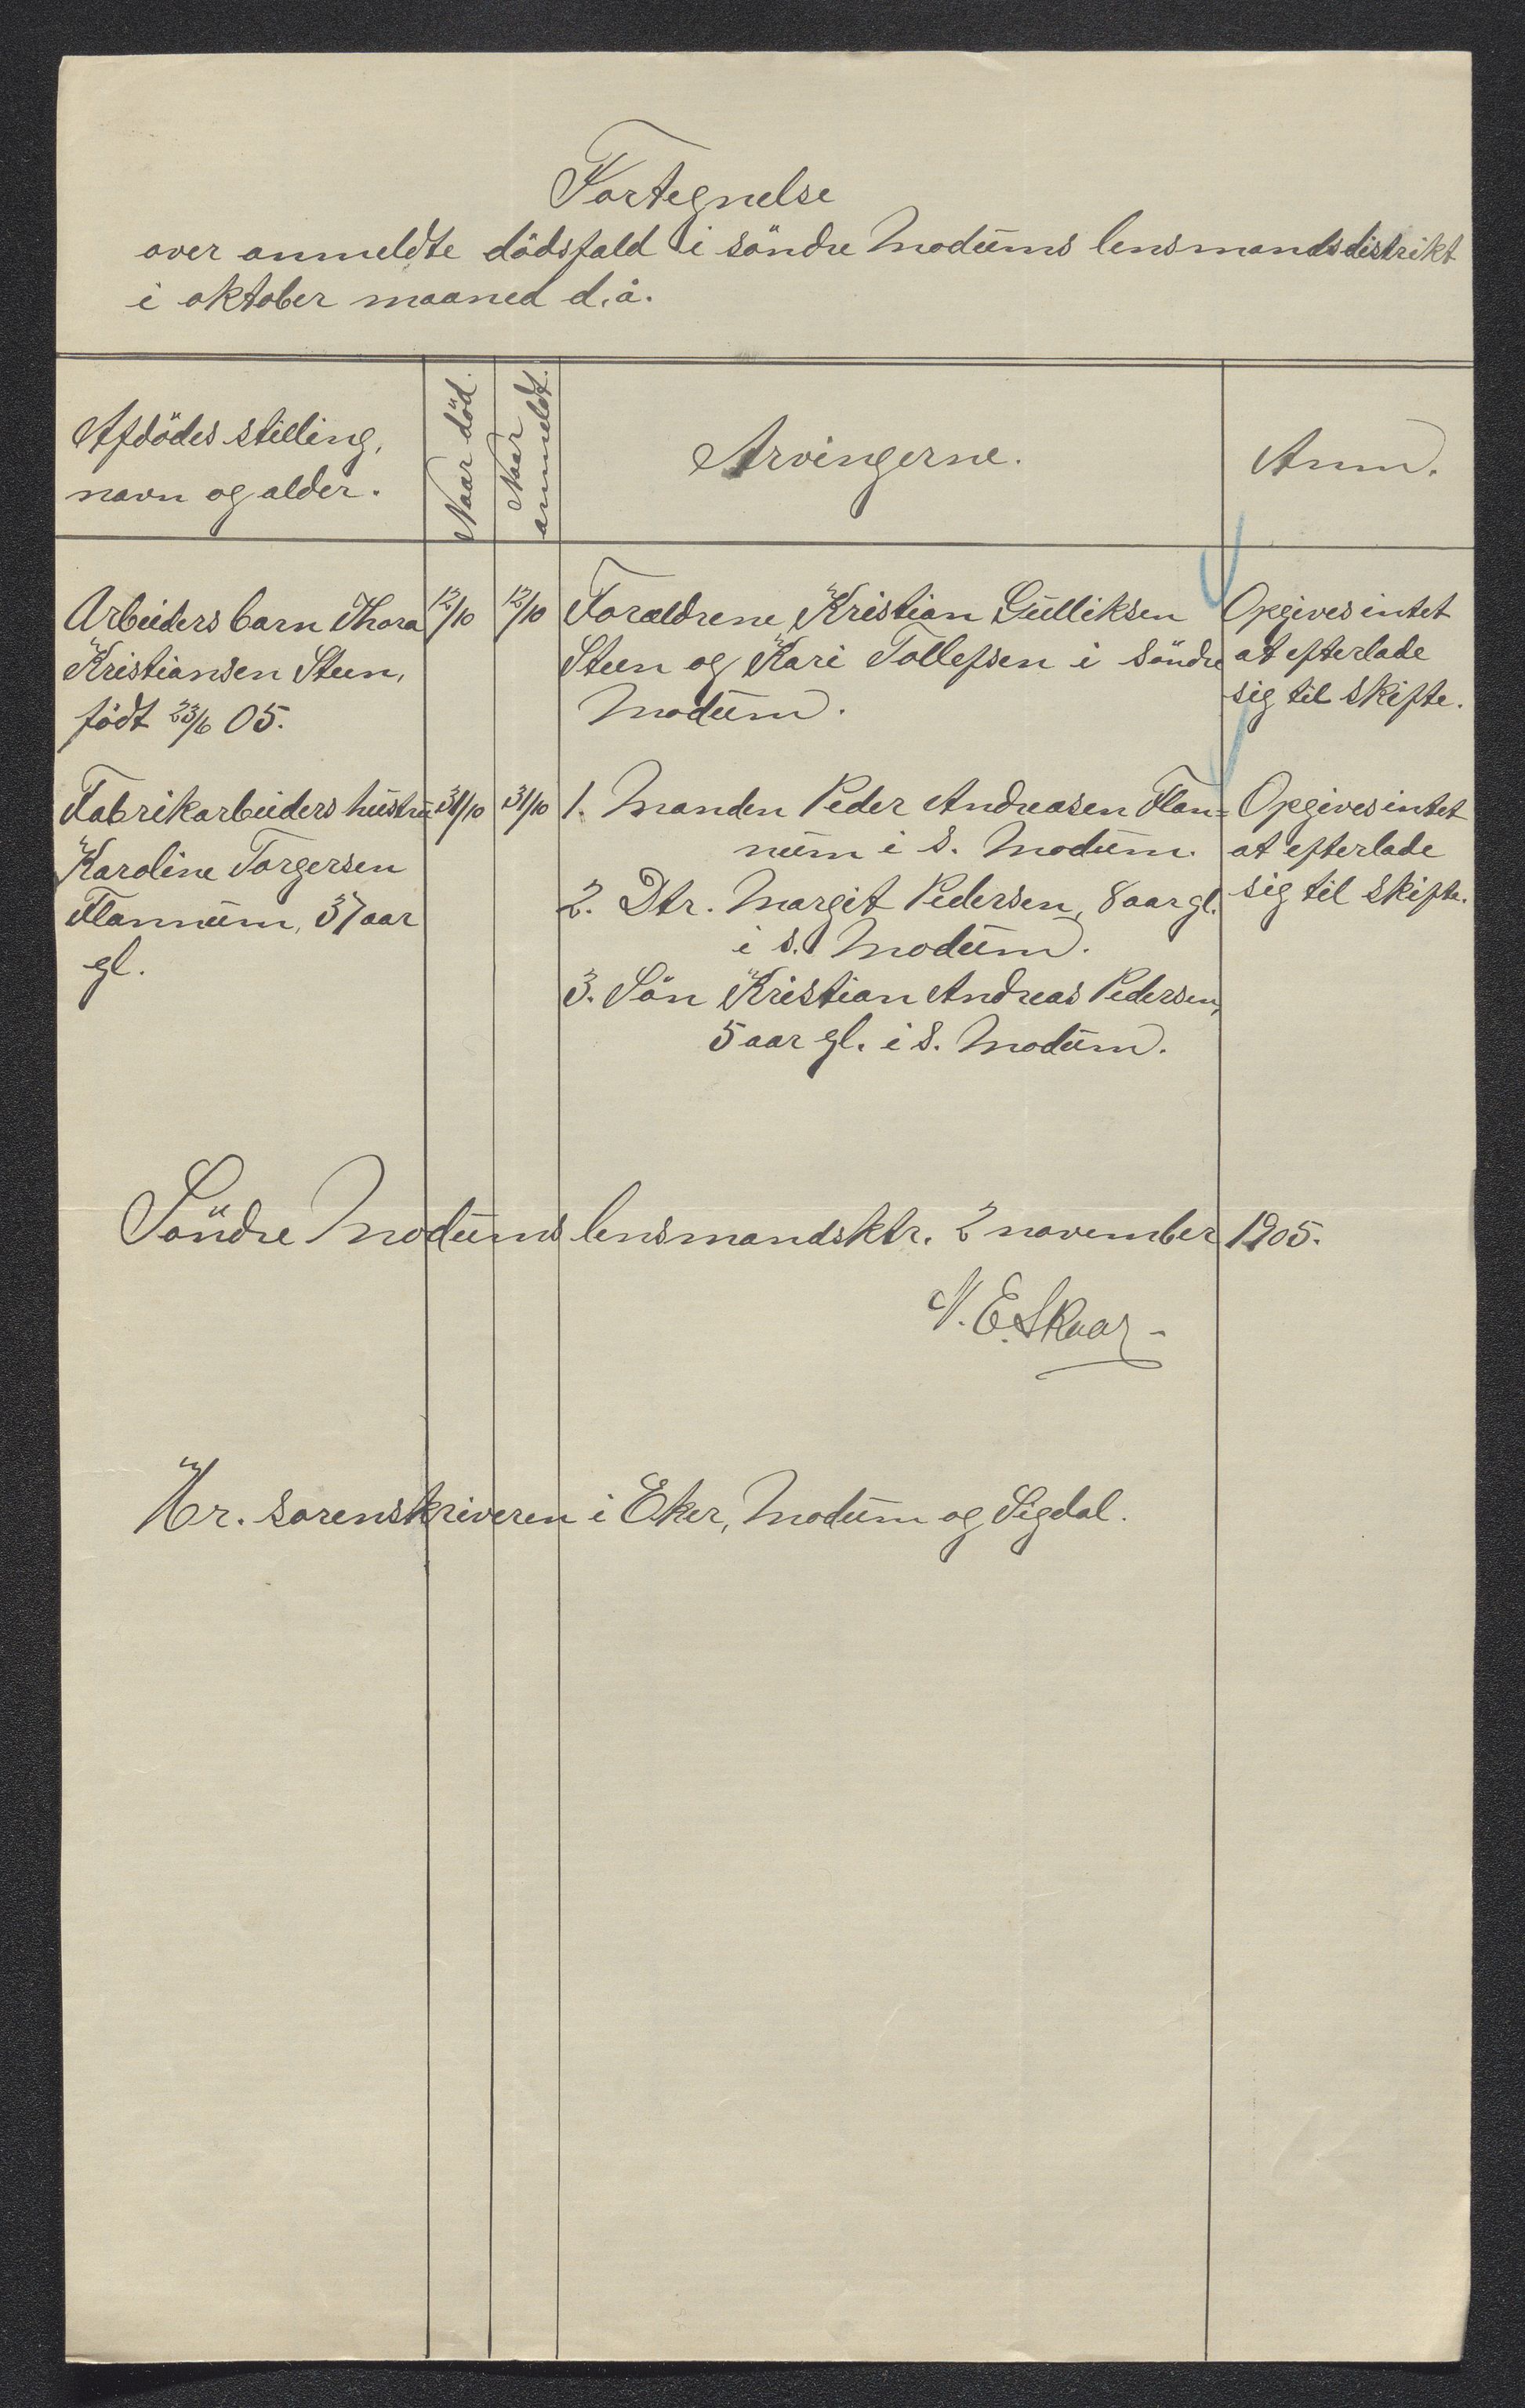 Fortegnelse
over anmeldte dödsfald i söndre Modums lensmandsdistrikt
i oktober maaned d. å.
Afdödes stilling,
navn og alder.
Naar död.
Naar
anmeldt.
Arvingerne.
Anm.
Arbeiders barn Thora
Kristiansen Steen,
födt 23/6 05.
12/10
12/10
Forældrene Kristian Gulliksen
Steen og Kari Tollefsen i söndre
Modum.
Opgives intet
at efterlade
sig til skifte.
Fabrikarbeiders hustru
Karoline Torgersen
Flannum, 37 aar
gl.
31/10
31/10
1. Manden Peder Andreasen Flan=
num i s. Modum.
2. Dtr. Margit Pedersen, 8 aar gl.
i s. Modum.
3. Sön Kristian Andreas Pedersen,
5 aar gl. i s. Modum.
Opgives intet
at efterlade
sig til skifte.
Söndre Modums lensmandsktr. 2 november 1905.
N. E. Skaar
Hr. sorenskriveren i Eker, Modum og Sigdal.